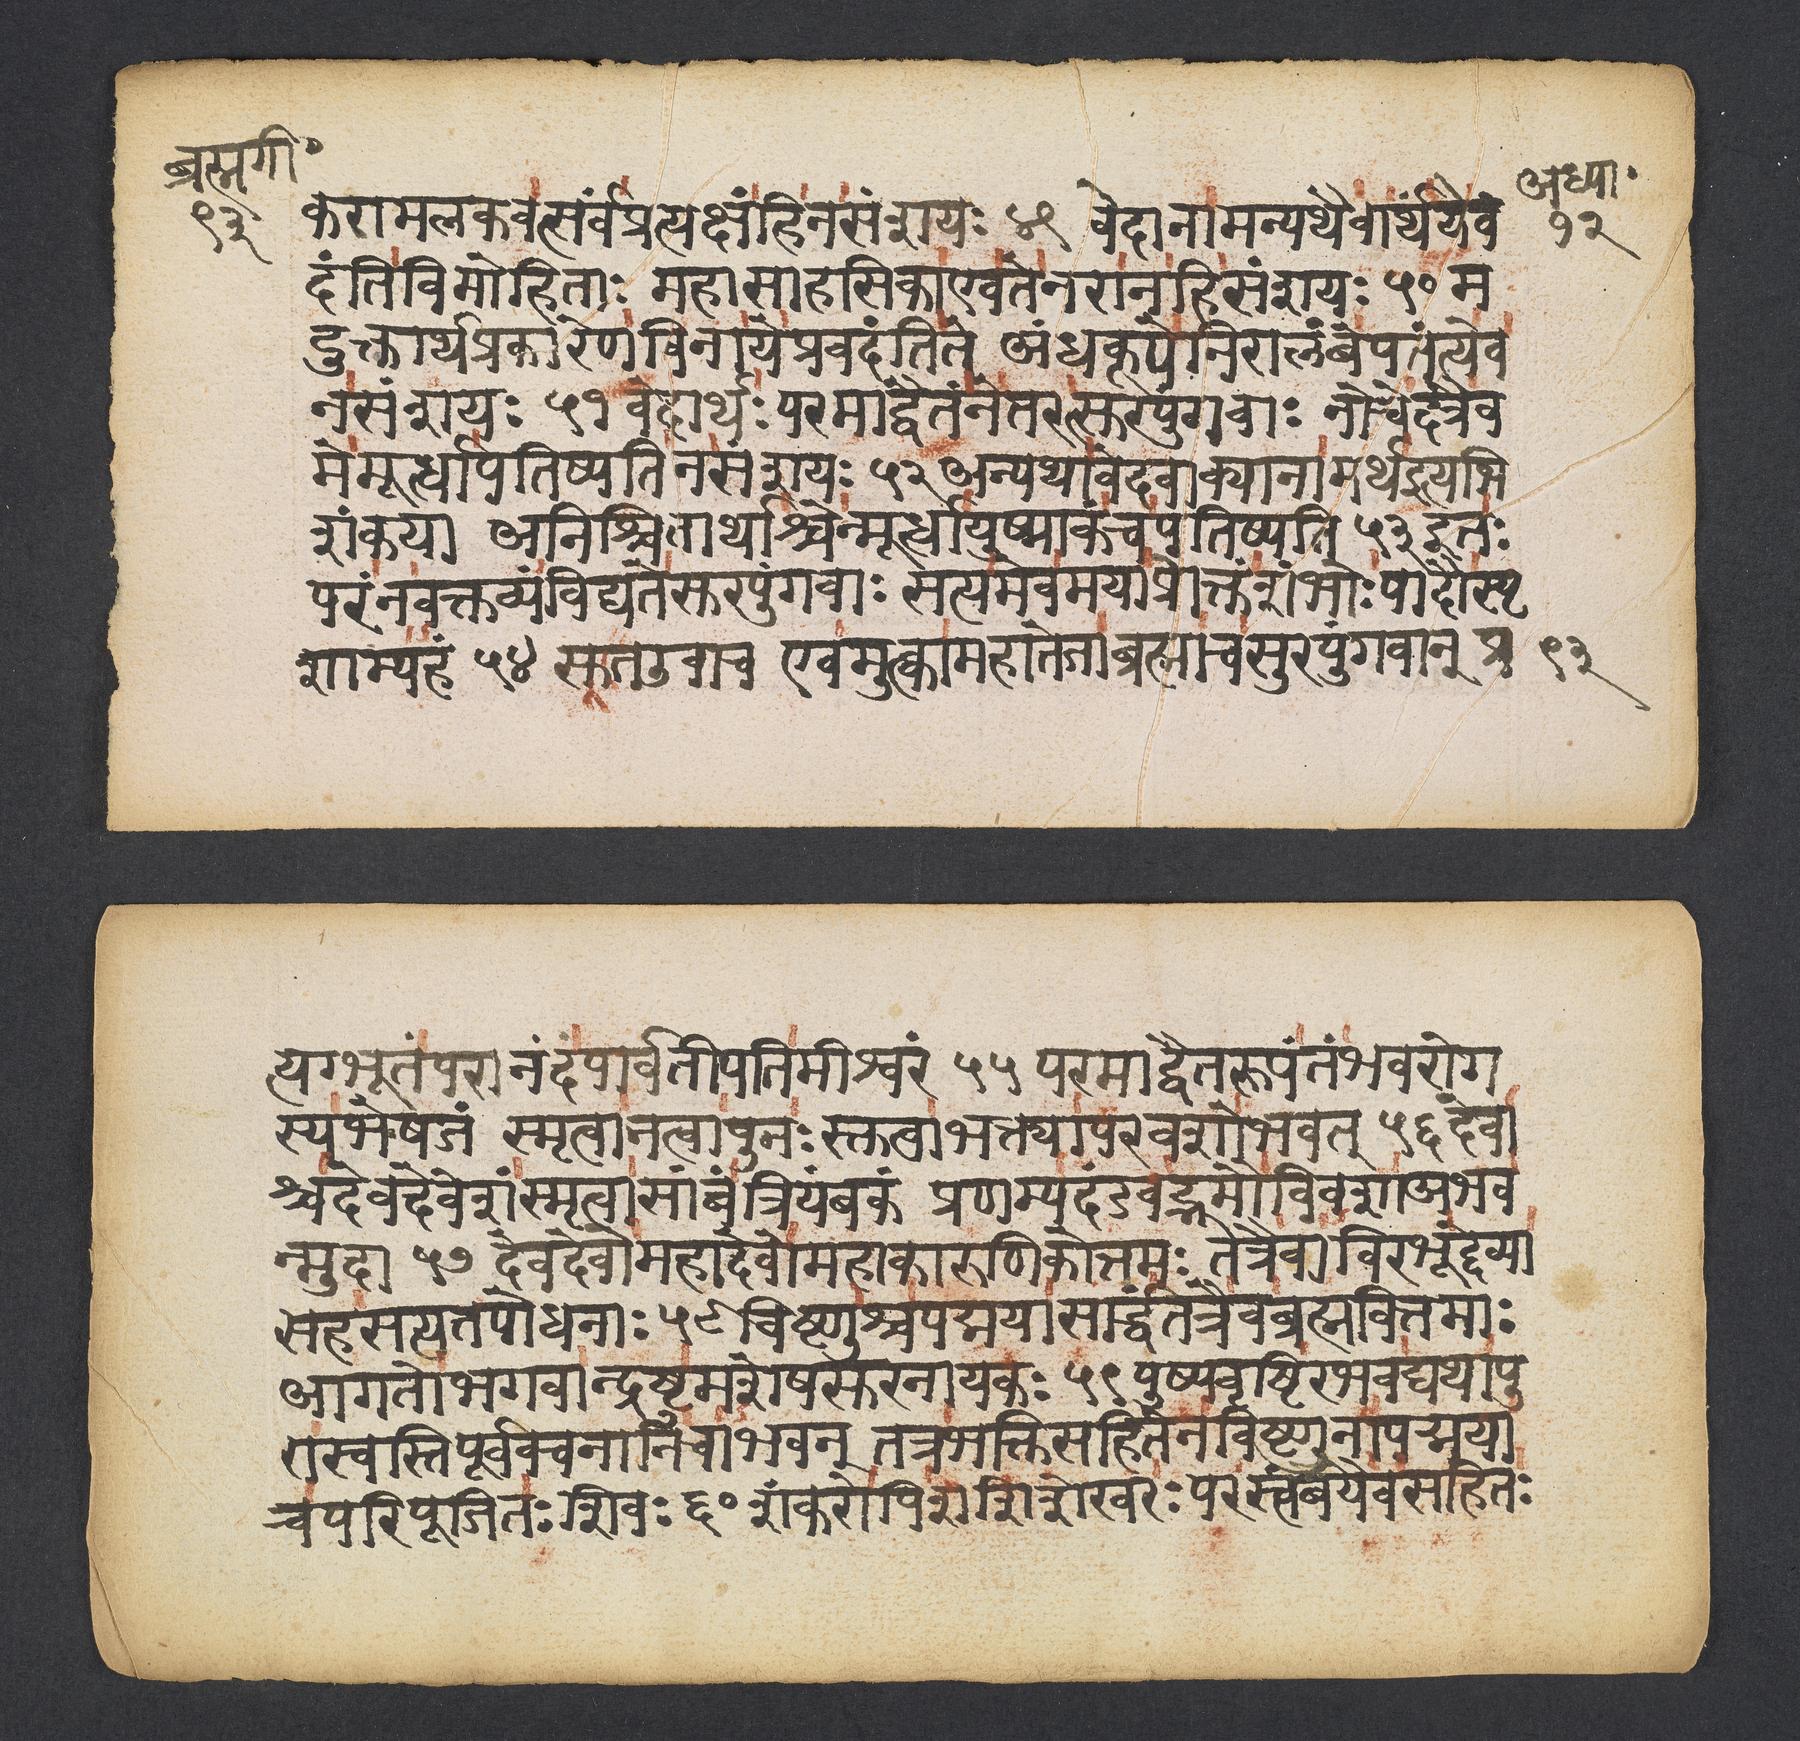 ब्रह्मगी॰
९३
अध्या॰
१२
करामलकवत्सर्वंप्रत्यक्षंहिनसंशयः ४९ वेदानामन्यथैवार्थंयेवं
दंतिविमोहिताः महासाहसिकाएवतेनरानहिसंशयः ५० म
दुक्तार्थप्रकारेणविनायेप्रवदंतिते अंधकूपेनिरालंबेपतंत्येव
नसंशयः ५१ वेदार्थः परमाद्वैतंनेतरत्सुरपुंगवाः नोचेदत्रैव
मेमूर्त्धापतिष्यतिनसंशयः ५२ अन्यथावेदवाक्यानामर्थइत्यभि
शंकया अनिश्चितार्थाश्चेन्मूर्त्धायुष्माकंचपतिष्यति ५३ इतः
परंनवक्तव्यंविद्यतेसुरपुंगवाः सत्यमेवमयाप्रोक्तंशंभोः पादौस्पृ
शाम्यहं ५४ सूतउवाच एवमुत्क्वामहातेजाब्रह्माचसुरपुंगवान् प्र
९३
त्यग्भूतंपरानंदंपार्वतीपतिमीश्वरं ५५ परमाद्वैतरूपंतंभवरोग
स्यभेषजं स्मृत्वानत्वापुनः स्तुत्वाभक्त्यापरवशोभवत् ५६ देवा
श्चदेवदेवेशंस्मृत्वासांबंत्रियंबकं प्रणम्यदंडवद्भूमौविवशाअभव
न्मुदा ५७ देवदेवोमहादेवोमहाकारुणिकोत्तमः तत्रैवाविरभूद्देव्या
सहसत्यतपोधनाः ५८ विष्णुश्चपद्मयासार्द्धंतत्रैवब्रह्मवित्तमाः
आगतोभगवान्द्रष्टुमशेषसुरनायकः ५९ पुष्पवृष्टिरभवद्यथापु
रास्वस्तिपूर्वकवनानिचाभवन् तत्रभक्तिसहितेनविष्णुनापद्मया
चपरिपूजितः शिवः ६० शंकरोपिशशिशेखरः परस्त्वंबयैवसहितः